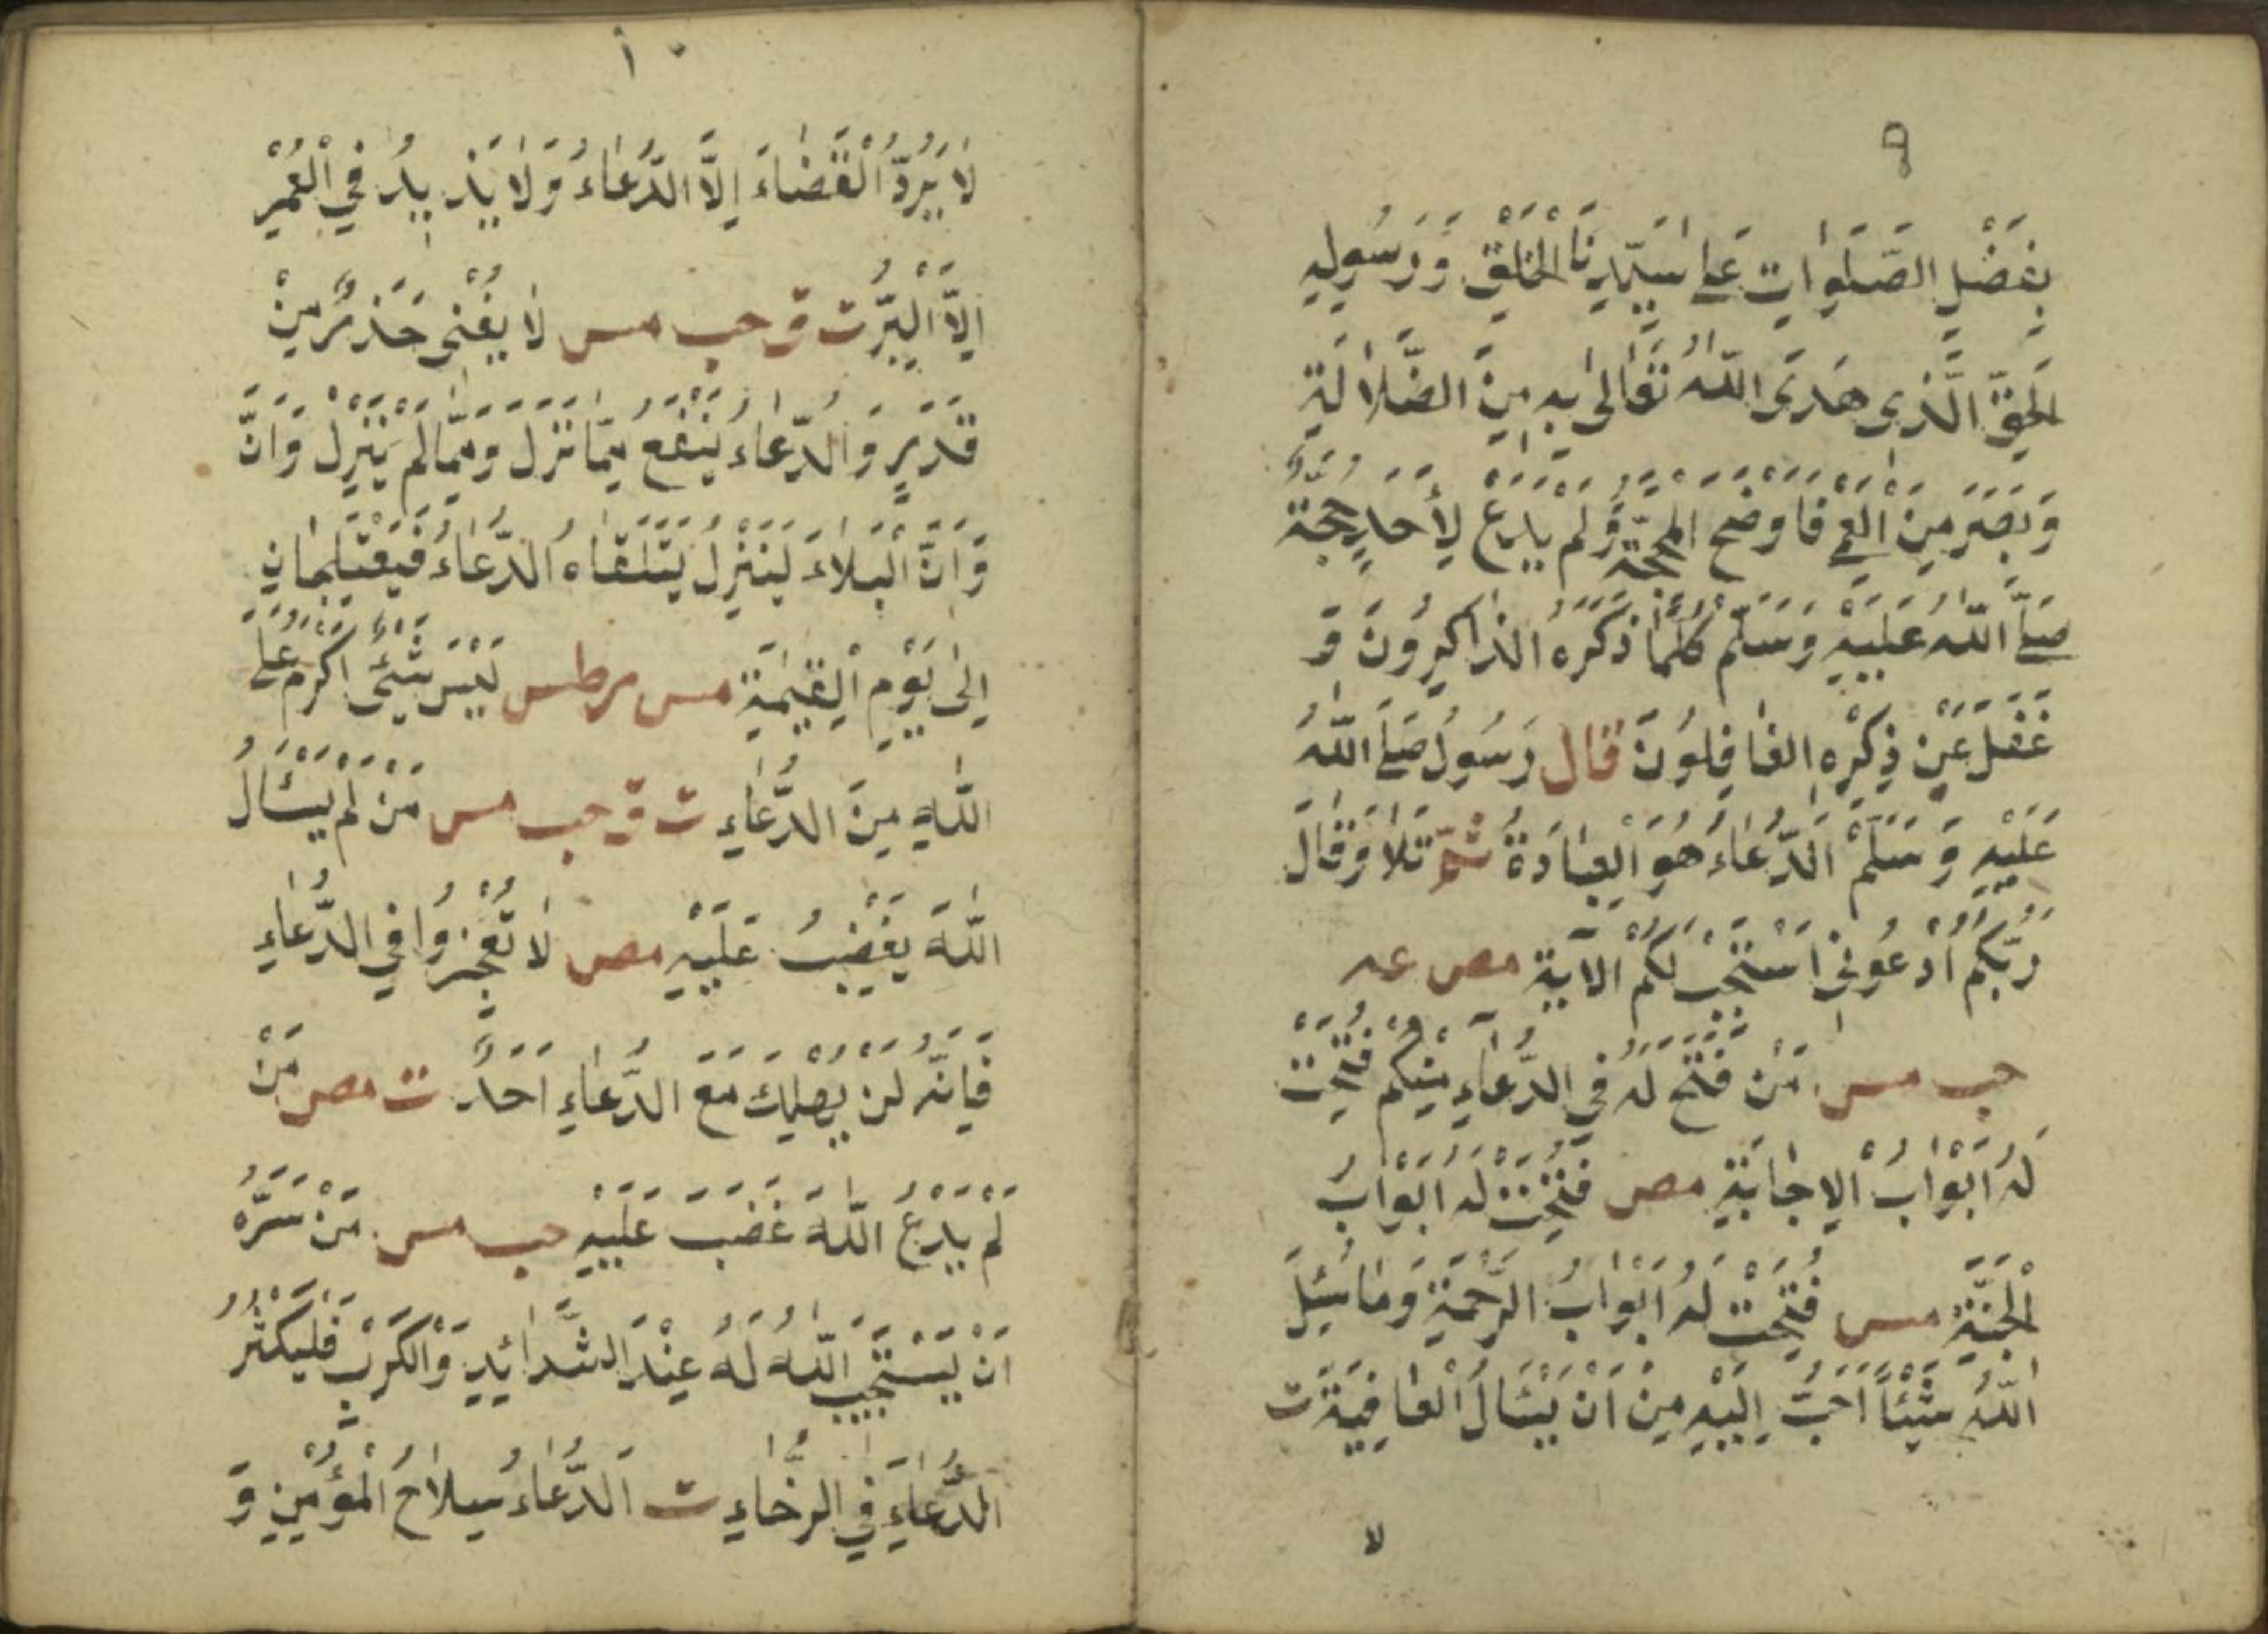 ٩
بِفَضْلِ الصَّلَوٰاتِ عَلىٰ سَيِّدِنَا الْخَلْقِ وَرَسُولِهِ
الحَقِّ الَّذِى هَدَى اللّٰهُ تَعٰالىٰ بِهِ مِنَ الضَّلٰالَةِ
وَبَصَّرَ مِنَ الْعَمٰى فَاَوْضَحَ المحَجَّةَ وَلَمْ يَدَعْ لِأَحَدٍ حُجَّةً
صَلَّى اللّٰهُ عَلَيْهِ وَسَلَّمَ كُلَّمٰا ذَكَرَهُ الذّاكِرُونَ وَ
غَفَلَ عَنْ ذِكْرِهِ الغٰافِلُونَ قال رَسُولُ صَلَّى اللّٰهُ
عَلَيْهِ وَسَلَّمْ اَلدُّعٰاءُ هُوَ الْعِبٰادَةُ ثُمَّ تَلٰا وَقٰالَ
رَبُّكُمُ ادْعُونِىْ اَسْتَجِبْ لَكُمْ الآيَةَ مص عه
حب مس مَنْ فُتِحَ لَهُ فِى الدُّعٰآءِ مِنْكُمْ فُتِحَتْ
لَهُ اَبْوٰابُ الْاِجٰابَةِ مص فُتِحَتْ لَهُ اَبْوٰابُ
الْجَنَّةِ مس فُتِحَتْ لَهُ اَبْوٰابُ الرَّحْمَةِ وَمٰا سُئِلَ
اللّٰهُ شَيْئاً اَحَبَّ اِلَيْهِ مِنْ اَنْ يُسْئَالَ الْعٰافِيَةَ ت
لا
١٠
لٰا يَرُدُّ الْقَضٰاءَ اِلَّا الدُّعٰاءُ وَلٰا يَزِيدُ فِي الْعُمْرِ
اِلَّا الْبِرُّ ت ق حب مس لٰا يُغْنِى حَذَرٌ مِنْ
قَدَرٍ وَالدُّعٰاءُ يَنْفَعُ مِمّٰا نَزَلَ وَمِمّٰا لَمْ يَنْزِلْ وَاَنَّ
وَاَنَّ الْبَلٰاءَ لَيَنْزِلُ يَتَلَقّٰاهُ الدُّعٰاءُ فَيَعْتَلِجٰانِ
اِلىٰ يَوْمِ الْقِيٰمَةِ مس مر طس لَيْسَ شَيْئٌ اَكْرَمَ عَلَى
اللّٰهِ مِنَ الدُّعٰاءِ ت ق حب مس مَنْ لَمْ يَسْئَالُ
اللّٰهَ يَغْضَبُ عَلَيْهِ مص لٰا تَعْجِزُوا فِي الدُّعٰاءِ
فَاِنَّهُ لَنْ يُهْلِكَ مَعَ الدُّعٰاءِ اَحَدٌ ت مص مَنْ
لَمْ يَدْعُ اللّٰهَ غَضَبَ عَلَيْهِ حب مس مَنْ سَرَّهُ
اَنْ يَسْتَجِيبَ اللّٰهُ لَهُ عِنْدَ الشَّدٰائِدِ وَالْكَرْبِ فَلْيُكْثِرُ
الدُّعٰاءِ فِي الرَّخٰاءِ ت اَلدُّعٰاءُ سِلٰاحُ الْمُؤْمِنِ وَ